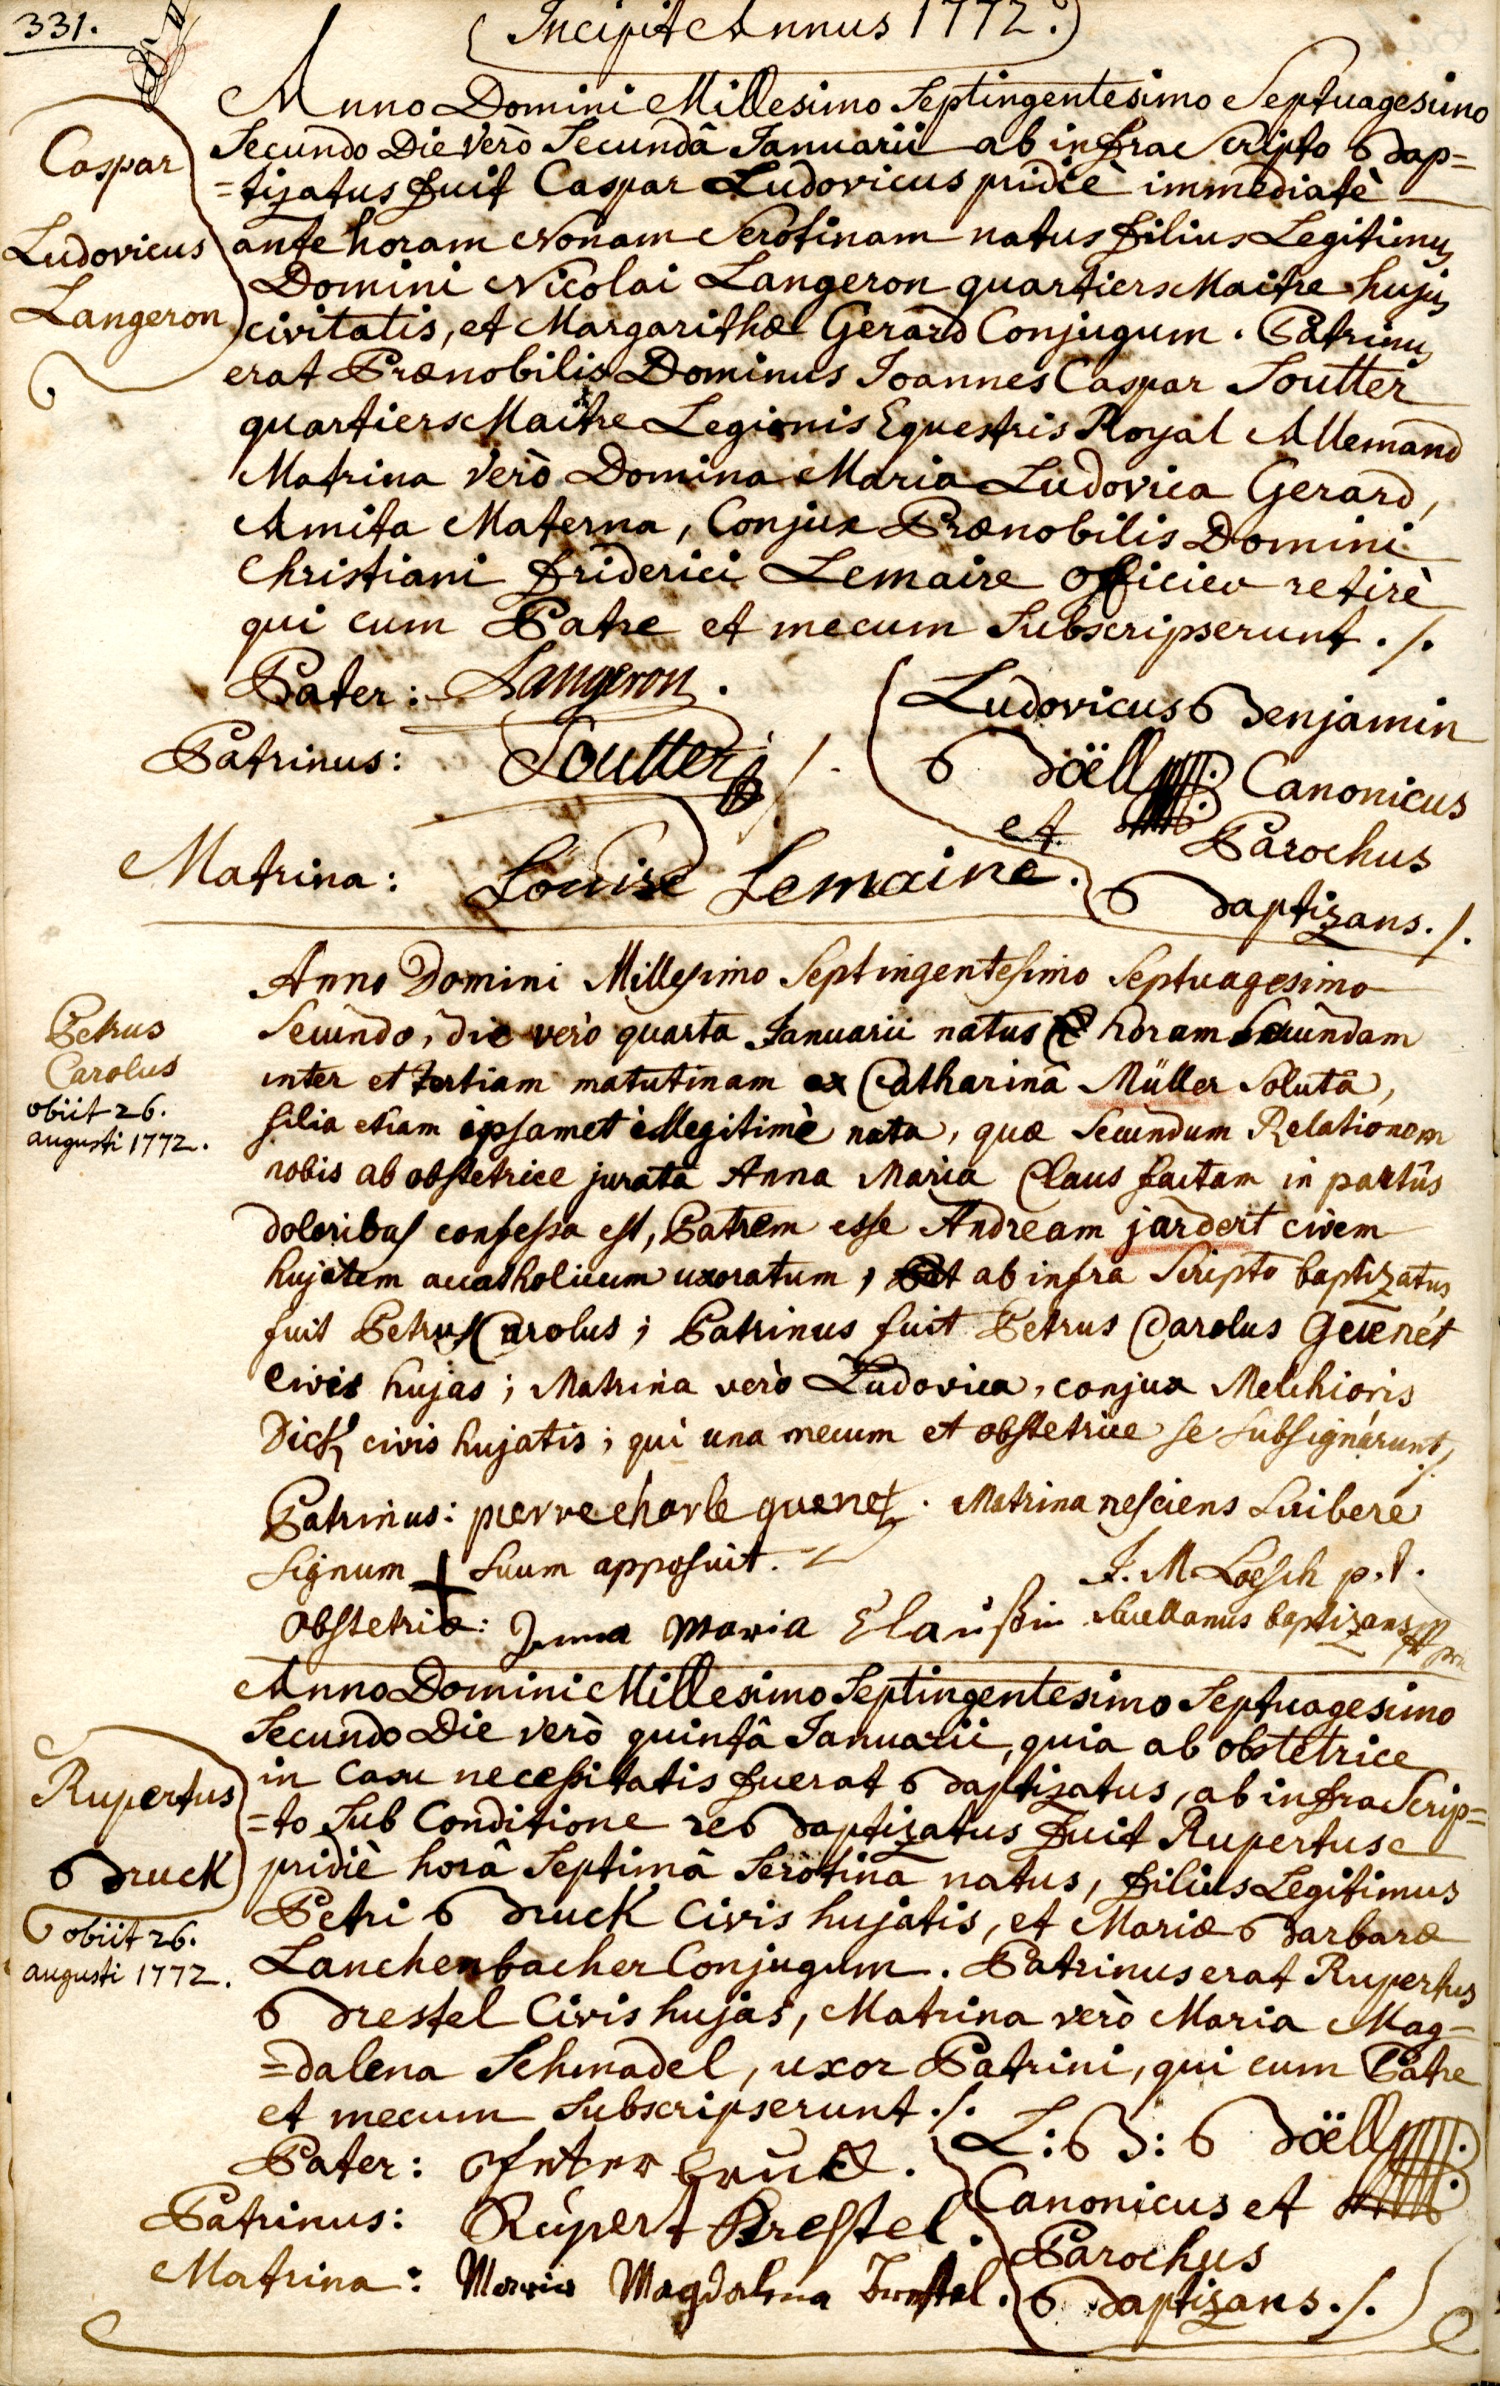 331.
(Incipit Annus 1772.)
Anno Domini Millesimo Septingentesimo Septuagesimo
Caspar
Ludovicus
Langeron
Secundo Die verò Secundâ Ianuarii ab infra Scripto Bap=
=tizatus fuit Caspar Ludovicus pridiè immediatè
ante horam Nonam Serotinam natus filius Legitimus
Domini Nicolai Langeron quartiers Maitre hujus
civitatis, et Margarithæ Gerard Conjugum. Patrinus
erat Prænobilis Dominus Ioannes Caspar Soutter
quartiers Maitre Legionis Equestris Royal Allemand
Matrina verò Domina Maria Ludovica Gerard,
Amita Materna, Conjux Prænobilis Domini
Christiani friderici Lemaire officier retirè
qui cum Patre et mecum Subscripserunt ./.
Pater: Langeron.
Patrinus: Soutter
Matrina: Louise Lemaire.
Ludovicus Benjamin
Böell Canonicus
et Parochus
Baptizans./.
Petrus
Carolus
obiit 26.
augusti 1772.
Anno Domini Millesimo Septingentesimo Septuagesimo
Secundo, die verò quarta Ianuarii natus horam Secundam
inter et tertiam matutinam ex Catharinâ Müller Solutâ,
filia etiam ipsamet illegitimè nata, quæ Secundum Relationem
nobis ab obstetrice jurata Anna Maria Claus factam in partûs
doloribus confessa est, Patrem esse Andream jardert civem
hujatem acatholicum uxoratum, ab infra Scripto baptizatus
fuit Petrus Carolus; Patrinus fuit Petrus Carolus Guenét
Civis hujas; Matrina verò Ludovica, conjux Melchioris
civis hujatis; qui una mecum et obstetrice se subsignárunt ./.
Patrinus: pierre charle guenet. Matrina nesciens Scribere
Signum + Suum apposuit.
J. M. Loesch p.t.
Obstetrix: Anna Maria Claußin Sacellanus baptizans
Rupertus
Bruck
obiit 26.
augusti 1772.
Anno Domini Millesimo Septingentesimo Septuagesimo
Secundo Die verò quintâ Ianuarii, quia ab obstetrice
in Casu necessitatis fuerat Baptizatus, ab infra Scrip=
=to Sub Conditione reBaptizatus fuit Rupertus
pridiè horâ Septimâ Serotinâ natus, filius Legitimus
Petri Bruck Civis hujatis, et Mariæ Barbaræ
Lanchenbacher Conjugum. Patrinus erat Rupertus
Brestel Civis hujas, Matrina verò Maria Mag=
=dalena Schmadel, uxor Patrini, qui cum Patre
et mecum Subscripserunt ./.
Pater: Peter bruck.
Patrinus: Rupert Brestel.
Matrina: Maria Magdalena Brestel.
L: B: Böell
Canonicus et
Parochus
Baptizans ./.